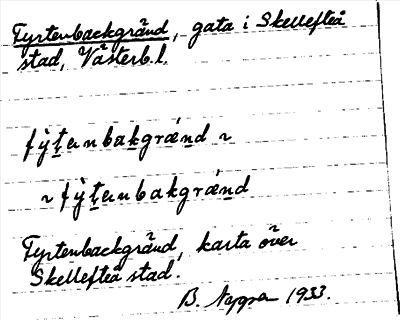 Fyrtenbackgränd, gata i Skellefteå
stad, Västerb.l.
fỳṭenbakgrǽṇd ~
~ fỳṭenbakgrǽṇd
Fyrtenbackgränd, karta över
Skellefteå stad.
B. Nygren 1933.